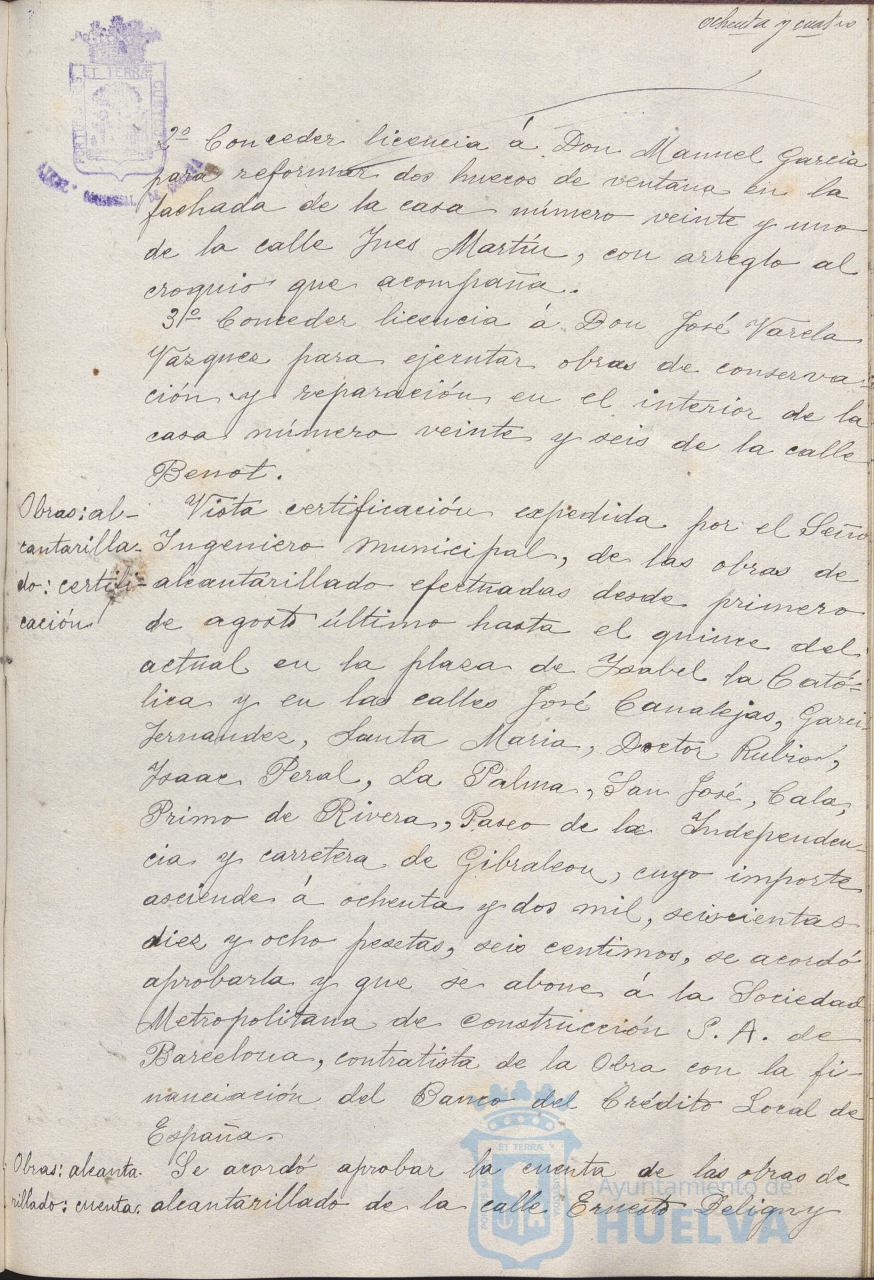 ochenta y cuatro
ET TERRÆ
2º Conceder licencia á Don Manuel Garcia
para reformar dos huecos de ventana en la
fachada de la casa número veinte y uno
de la calle Ines Martín, con arreglo al
croquis que acompaña.
3º Conceder licencia á Don José Varela
Vazquez para ejecutar obras de conserva-
ción y reparación en el interior de la
casa número veinte y seis de la calle
Benot.
Obras: al-
cantarilla-
do: certifi-
cación
Vista certificación expedida por el Seño
Ingeniero municipal, de las obras de
alcantarillado efectuadas desde primero
de agosto último hasta el quince del
actual en la plaza de Ysabel la Cató-
lica y en las calles José Canalejas, Garci
Fernandez, Santa Maria, Doctor Rubio,
Isaac Peral, La Palma, San José, Cala,
Primo de Rivera, Paseo de la Independen-
cia y carretera de Gibraleon, cuyo importe
asciende á ochenta y dos mil, seiscientas
diez y ocho pesetas, seis centimos, se acordó
aprobarla y que se abone á la Sociedad
Metropolitana de construcción S. A. de
Barcelona, contratista de la Obra con la fi-
nanciación del Banco del Crédito Local de
España.
Obras: alcanta-
rillado: cuenta.
Se acordó aprobar la cuenta de las obras de
alcantarillado de la calle Ernesto Deligny
ET TERRÆ
Ayuntamiento de
HUELVA